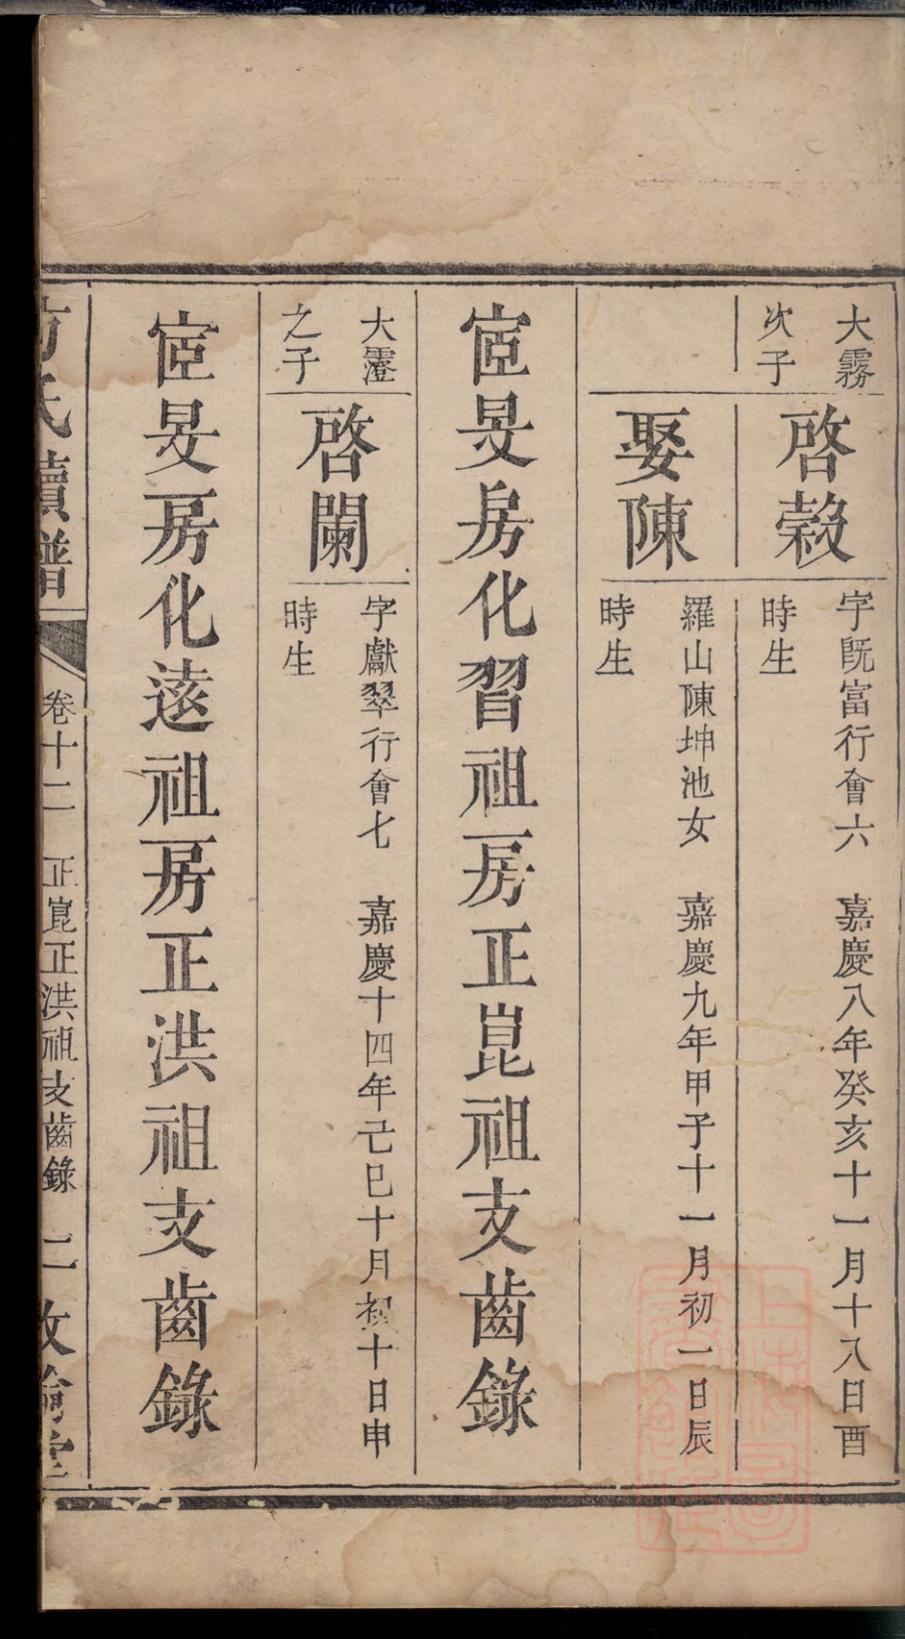 大霧
次子
啓榖
字旣富行會六　嘉慶八年癸亥十一月十八日酉
時生
娶陳
羅山陳坤池女　嘉慶九年甲子十一月初一日辰
時生
宧旻房化習祖房正崑祖支齒錄
大霮
之子
啓闌
字獻翠行會七　嘉慶十四年己巳十月初十日申
時生
宧旻房化逺祖房正洪祖支齒錄
方氏續譜
卷十二　正崑正洪祖支齒錄　二